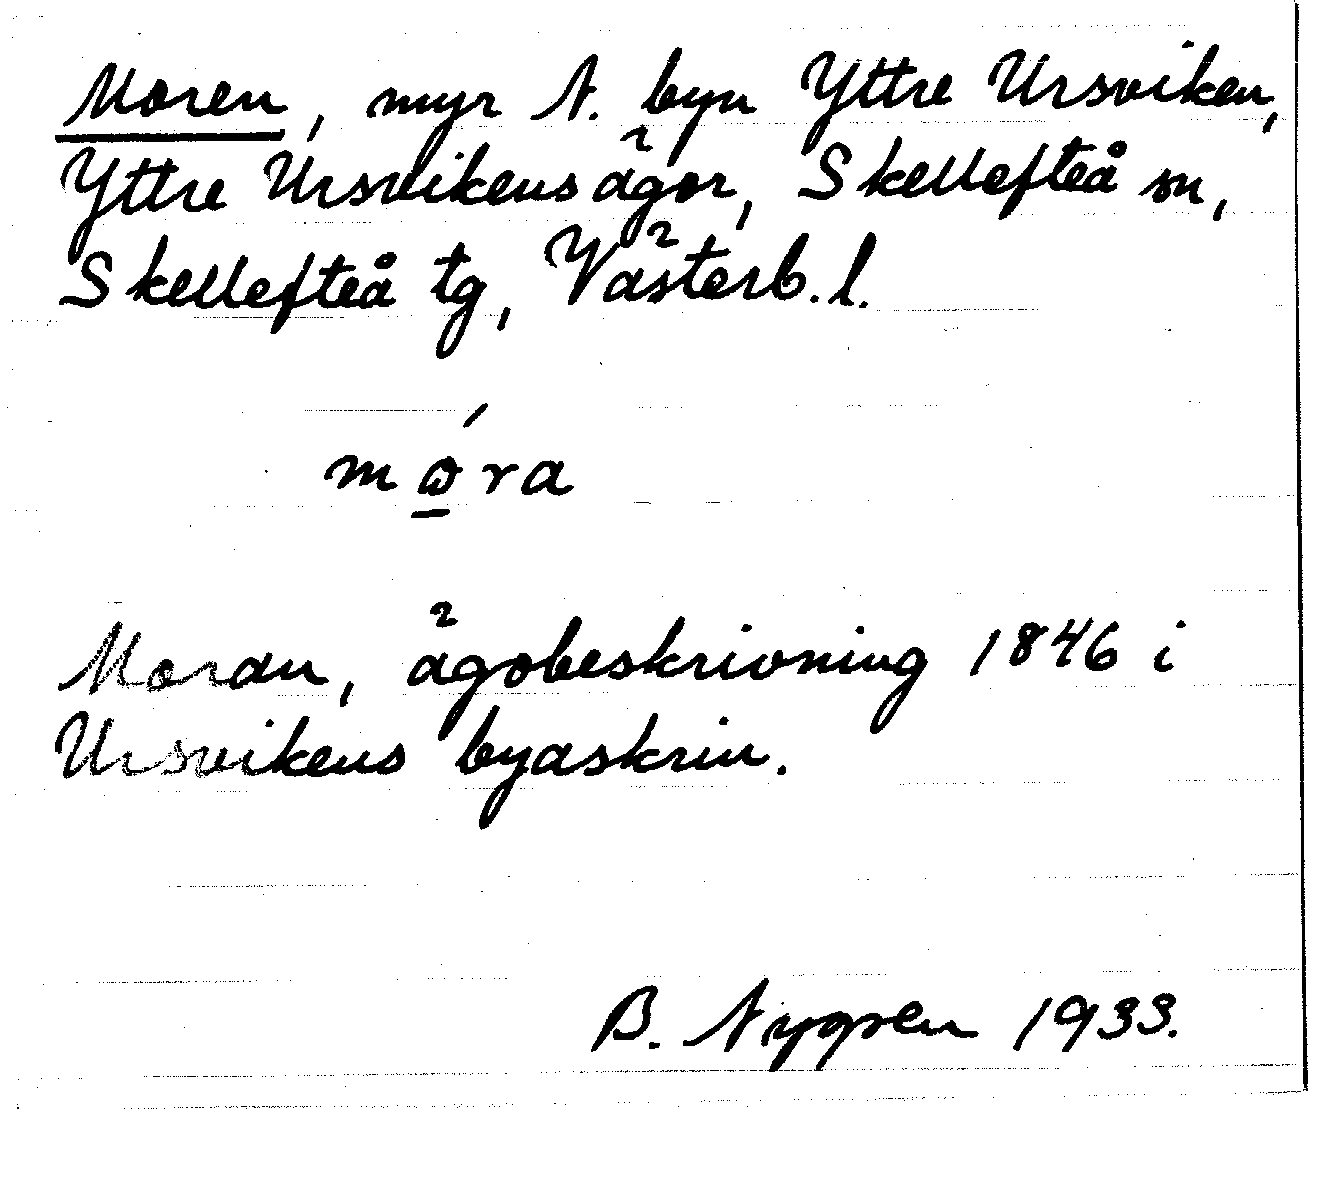 Moren, myr N. byn Yttre Ursviken,
Yttre Ursvikens ägor, Skellefteå sn,
Skellefteå tg, Västerb. l.
mώ̱ra
Moran, ägobeskrivning 1846 i
Ursvikens byaskrin.
B. Nygren 1933.